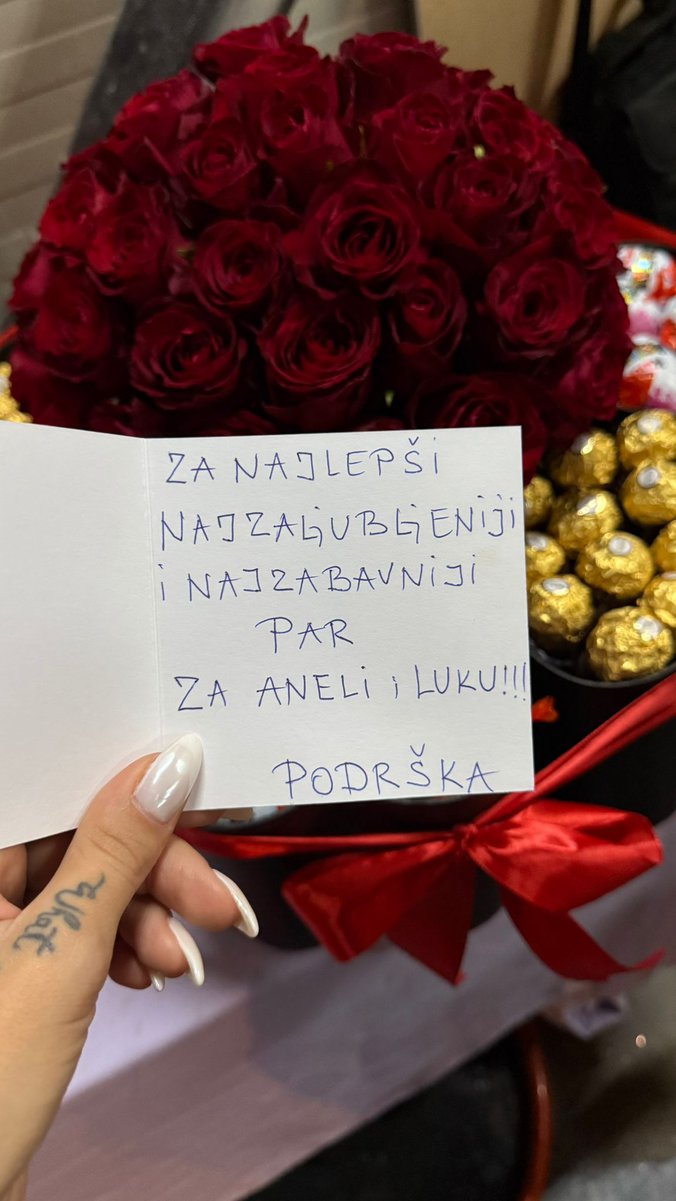 ZA NAJLEPŠi
NAJZALjUBLjENiji
i NAJZABAVNiJi
PAR
ZA ANELi i LUKU!!!
PODRŠKA
what